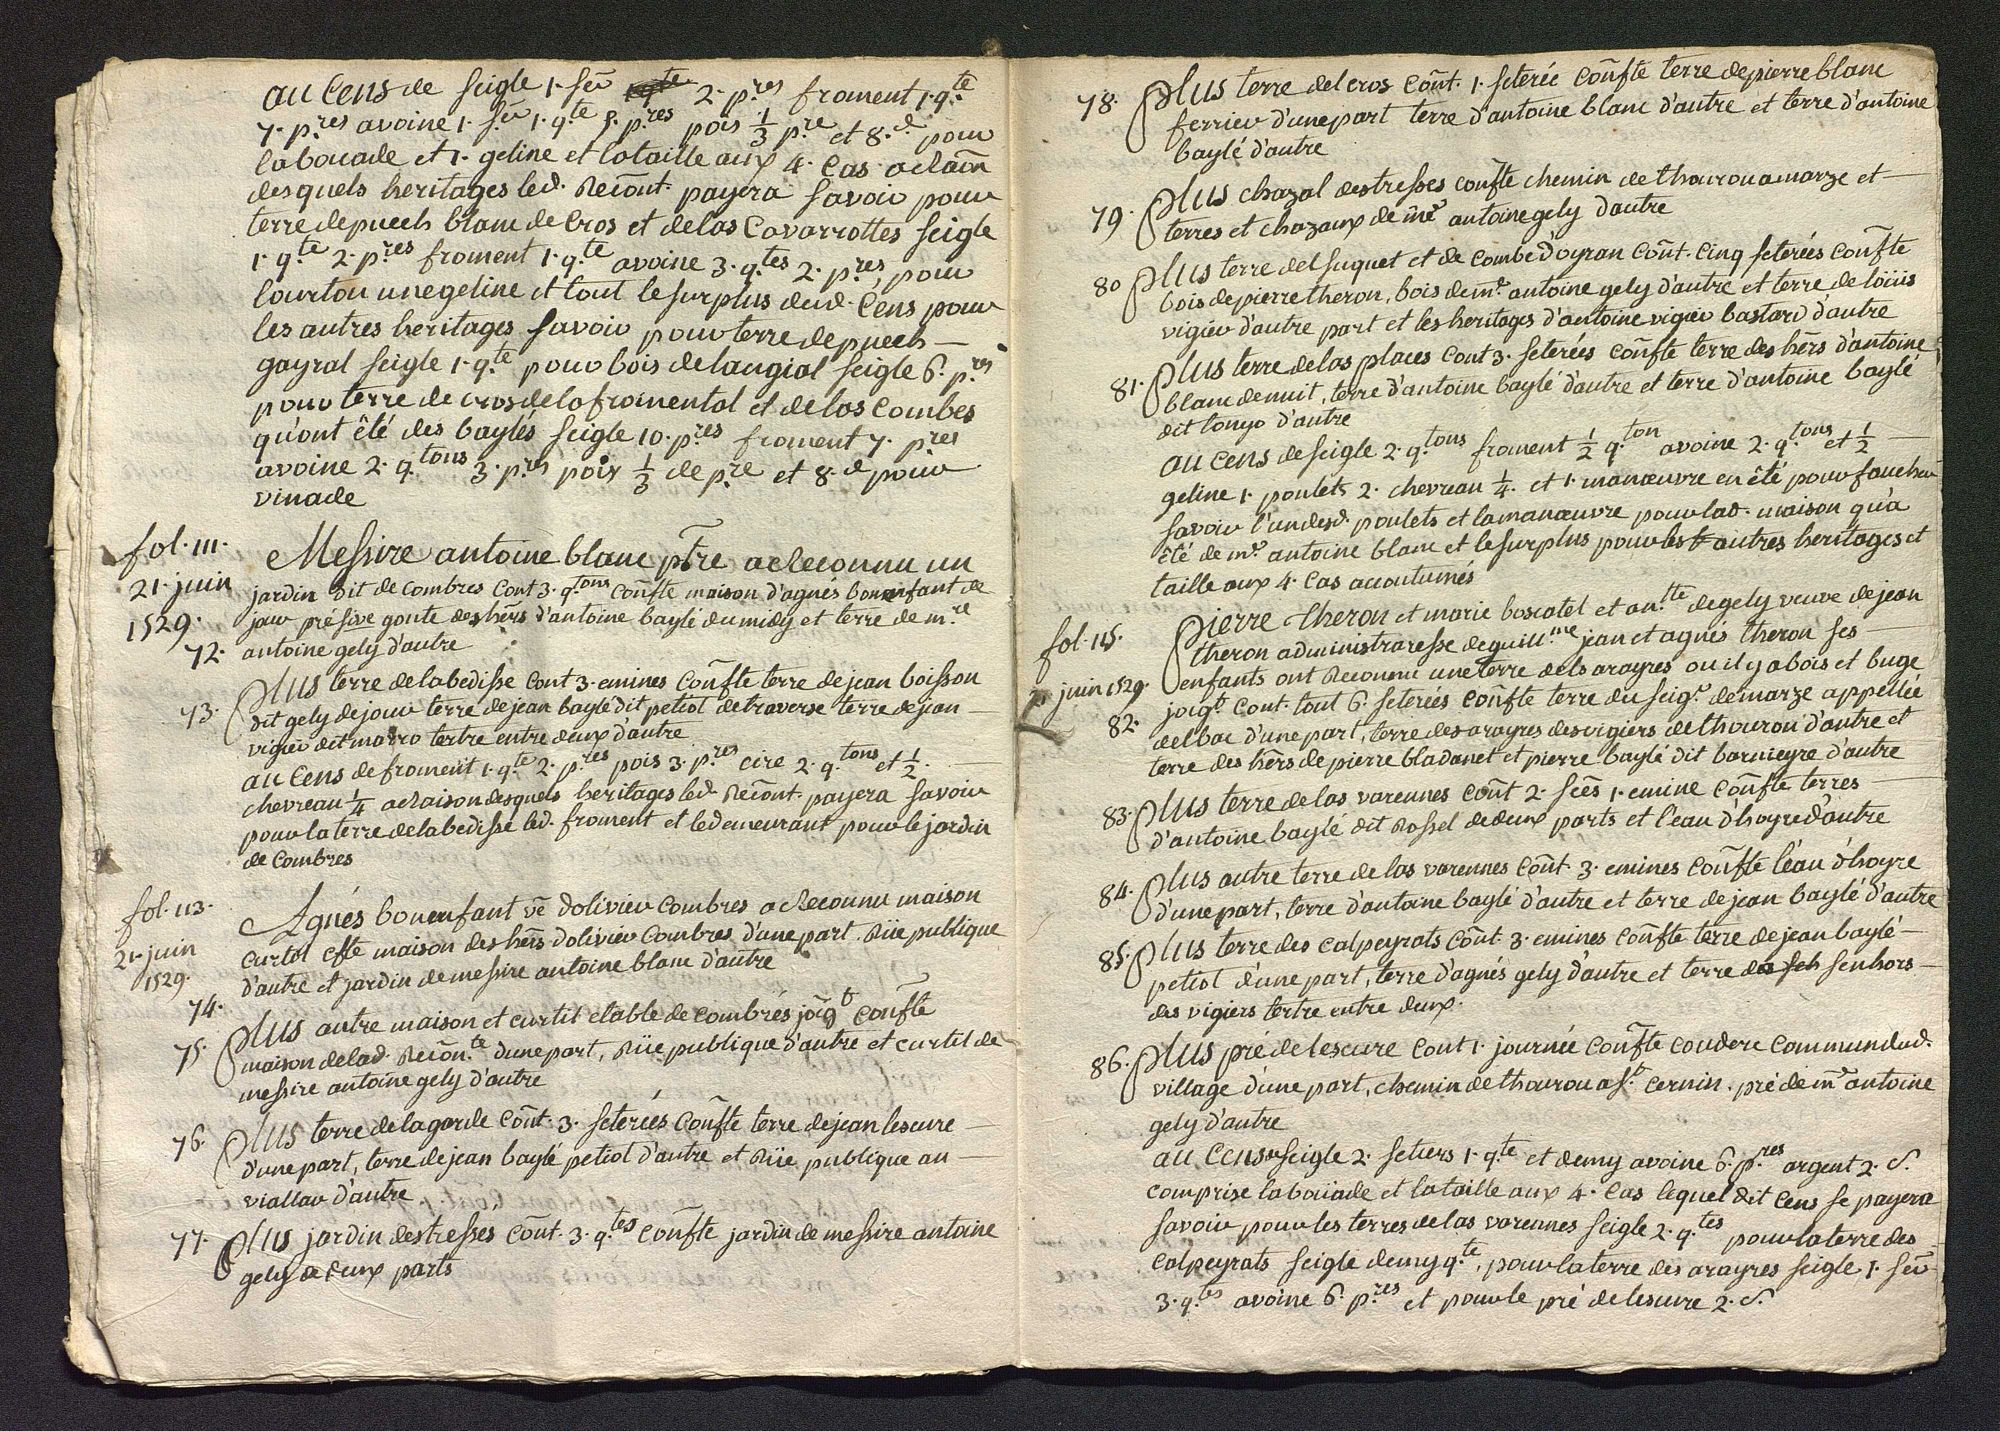 au Cens de seigle 1. ser 2. p.res froment 1. q.te
7. p.res avoine 1. ser 1. q.te 5. p.res pois 1/3 p.re et 8. d. pour
la bouade et 1. geline et la taille aux 4. Cas a Raōn
desquels heritages led. Recōnt. payera savoir pour
terre de puech blanc de Cros et de las Cavarrottes seigle
1. q.te 2. p.res froment 1. q.te avoine 3. q.tes 2. p.res, pour
lourtou une geline et tout le surplus dud. Cens pour
les autres heritages savoir pour terre de puech
gayral seigle 1. q.te pour bois de laugial seigle 6. p.res
pour terre de cros de la fromental et de las Combes
qu'ont êté des baylés seigle 10. p.res froment 7. p.res
avoine 2. q.tons 3. p.res pois 1/3 de p.re et 8. d. pour
vinade
fol. 111.
21. juin
1529.
72.
Messire antoine blanc ptre a Reconnu un
jardin dit de Combres cont 3. q.tons confte maison d'agnés bonenfant de
jour présive gonte des hers d'antoine baylé du midy et terre de m.re
antoine gely d'autre
73. Plus terre de la bedisse cont 3. emines confte terre de jean boisson
dit gely de jour terre de jean baylé dit petiol de traverse terre de jean
vigier dit marro tertre entre deux d'autre
au Cens de froment 1. q.te 2. p.res pois 3. p.res cire 2. q.tons et 1/2.
chevreau 1/4 a Raison desquels heritages led. Recont. payera savoir
pour la terre de la bedisse led. froment et le demeurant pour le jardin
de Combres
fol. 113.
21. juin
1529.
74.
Agnés bonenfant ve d'olivier Combres a Reconnu maison
curtol cfte maison des hers d'olivier Combres d'une part. Rüe publique
d'autre et jardin de messire antoine blanc d'autre
75. Plus autre maison et curtil etable de Combrés joig.t confte
maison de lad. Recōn.te d'une part, Rüe publique d'autre et curtil de
messire antoine gely d'autre
76. Plus terre de la garde cont. 3. seterées confte terre de jean lescure
d'une part, terre de jean baylé petiol d'autre et Rüe publique au
viallar d'autre
77. Plus jardin destressés cont. 3. q.tes confte jardin de messire antoine
gely de deux parts
78. Plus terre del cros cont. 1. seterée confte terre de pierre blanc
ferrieu d'une part terre d'antoine blanc d'autre et terre d'antoine
baylé d'autre
79. Plus chazal destresses confte chemin de thourou a marze et
terres et chazaux de m.e antoine gely d'autre
80 Plus terre del suquet et de combe d'oyran cont. cinq seterées confte
bois de pierre theron, bois de m.e antoine gely d'autre et terre de loüis
vigier d'autre part et les heritages d'antoine vigier bastard d'autre
81. Plus terre de las places cont 3. seterées confte terre des hers d'antoine
blanc de nuit, terre d'antoine baylé d'autre et terre d'antoine baylé
dit tonyo d'autre
au cens de seigle 2. q.tons froment 1/2 q.ton avoine 2. q.tons et 1/2
geline 1. poulets 2. chevreau 1/4. et 1. manœuvre en êté pour faucher
savoir l'un desd. poulets et la manœuvre pour lad. maison qu'a
êté de m.e antoine blanc et le surplus pour les autres heritages et
taille aux 4. Cas accoutumés
fol. 115.
juin 1529.
82.
Pierre theron et marie boscatel et an.tte de gely veuve de jean
theron administraresse de guill.me jean et agnés theron ses
enfants ont Reconnu une terre dels arayres ou il y a bois et buge
joig.t cont. tout 6. seterées confte terre du seig.r de marze appellée
del bac d'une part, terre des arayres des vigiers de thourou d'autre et
terre des hers de pierre bladanet et pierre baylé dit barnieyre d'autre
83. Plus terre de las varennes cont 2. seés 1. emine confte terres
d'antoine baylé dit Rossel de deux parts et l'eau d'hoyre d'autre
84. Plus autre terre de las varennes cont. 3. emines confte l'eau d'hoyre
d'une part, terre d'antoine baylé d'autre et terre de jean baylé d'autre
85. Plus terre des calpeyrats cont. 3. emines confte terre de jean baylé
petiol d'une part, terre d'agnés gely d'autre et terre senhors
des vigiers tertre entre deux.
86. Plus pré de lescure cont 1. journée confte couderc commun dud.
village d'une part, chemin de thourou a s.t cernin. pré de m.e antoine
gely d'autre
au Cens seigle 2. setiers 1. q.te et demy avoine 6. p.res argent 2. s.
comprise la boüade et la taille aux 4. Cas lequel dit Cens se payera
savoir pour les terres de las varennes seigle 2. q.tes pour la terre des
calpeyrats seigle demy q.te, pour la terre des arayres seigle 1. ser
3. q.tes avoine 6. p.res et pour le pré de lescure 2. s.